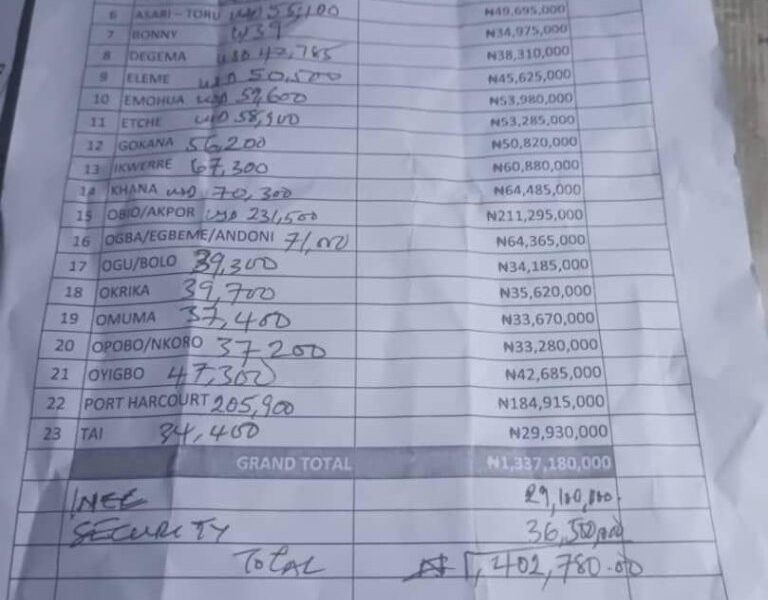 6 ASARI-TORU USD 55,100 ₦49,695,000
7 BONNY ₦34,975,000
8 DEGEMA USD 42,785 ₦38,310,000
9 ELEME USD 50,500 ₦45,625,000
10 EMOHUA USD 59,600 ₦53,980,000
11 ETCHE USD 58,900 ₦53,285,000
12 GOKANA 56,200 ₦50,820,000
13 IKWERRE 67,300 ₦60,880,000
14 KHANA USD 70,300 ₦64,485,000
15 OBIO/AKPOR USD 231,500 ₦211,295,000
16 OGBA/EGBEME/ANDONI 71,000 ₦64,365,000
17 OGU/BOLO 39,300 ₦34,185,000
18 OKRIKA 39,700 ₦35,620,000
19 OMUMA 37,400 ₦33,670,000
20 OPOBO/NKORO 37,200 ₦33,280,000
21 OYIGBO 47,300 ₦42,685,000
22 PORT HARCOURT 205,900 ₦184,915,000
23 TAI 34,400 ₦29,930,000
GRAND TOTAL ₦1,337,180,000
INEC 29,100,000
SECURITY 36,500,000
TOTAL ₦ 1,402,780.00